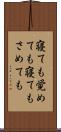 寝ても覚め
ても寝ても
さめても